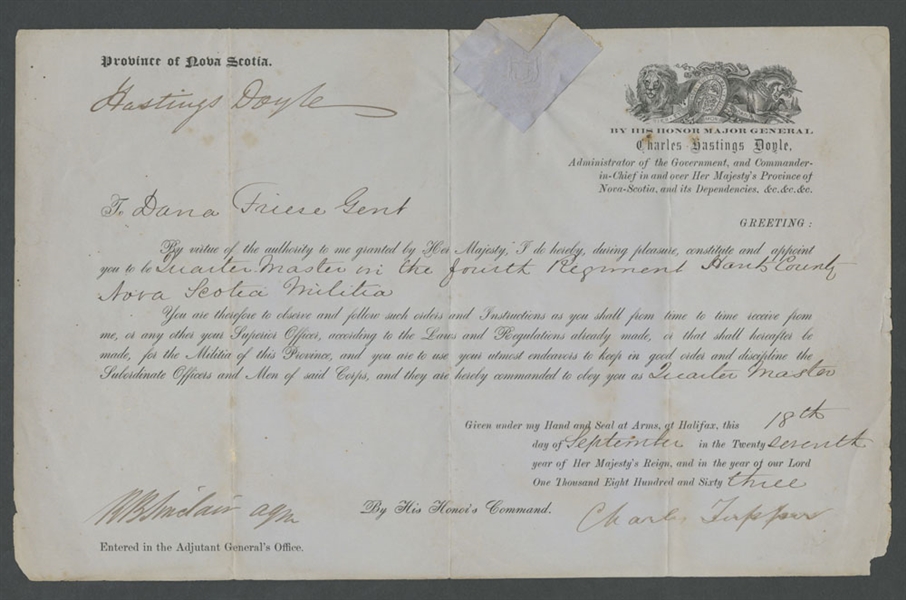 Province of Nova Scotia.
Hastings Doyle
BY HIS HONOR MAJOR GENERAL
Charles Hastings Doyle,
Administrator of the Government, and Commander-
in-Chief in and over Her Majesty's Province of
Nova-Scotia, and its Dependencies, &c.&c.&c.
To Dana Friese Gent
GREETING:
By virtue of the authority to me granted by Her Majesty, I do hereby, during pleasure, constitute and appoint
you to be Quarter Master in the fourth Regiment Hants County
Nova Scotia Militia
You are therefore to observe and follow such orders and Instructions as you shall from time to time receive from
me, or any other your Superior Officer, according to the Laws and Regulations already made, or that shall hereafter be
made, for the Militia of this Province, and you are to use your utmost endeavors to keep in good order and discipline the
Subordinate Officers and Men of said Corps, and they are hereby commanded to obey you as Quarter Master
Given under my Hand and Seal at Arms, at Halifax, this 18th
day of September in the Twenty seventh
year of Her Majesty's Reign, and in the year of our Lord
One Thousand Eight Hundred and Sixty three
By His Honor's Command.
R B Sinclair agm
Charles Tupper
Entered in the Adjutant General's Office.